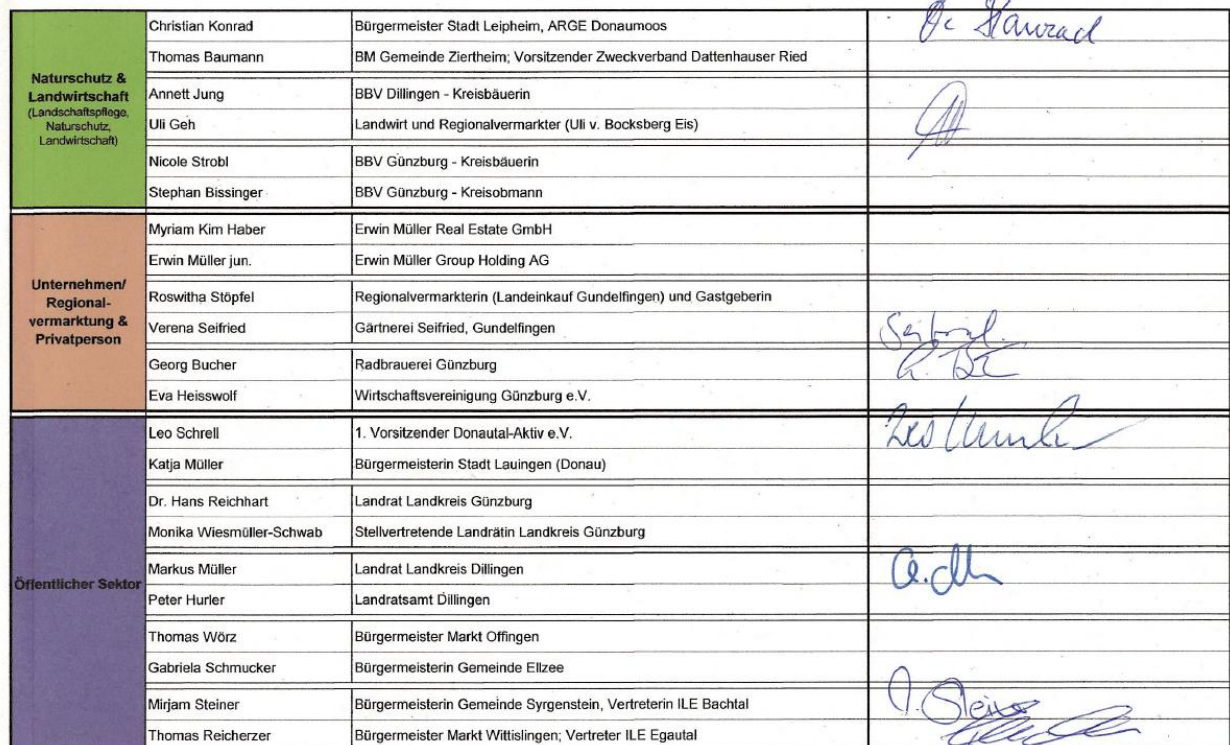 Naturschutz &
Landwirtschaft
(Landschaftspflege,
Naturschutz,
Landwirtschaft)
Christian Konrad Bürgermeister Stadt Leipheim, ARGE Donaumoos Konrad
Thomas Baumann BM Gemeinde Ziertheim; Vorsitzender Zweckverband Dattenhauser Ried
Annett Jung BBV Dillingen - Kreisbäuerin
Uli Geh Landwirt und Regionalvermarkter (Uli v. Bocksberg Eis)
Nicole Strobl BBV Günzburg - Kreisbäuerin
Stephan Bissinger BBV Günzburg - Kreisobmann
Unternehmen/
Regional-
vermarktung &
Privatperson
Myriam Kim Haber Erwin Müller Real Estate GmbH
Erwin Müller jun. Erwin Müller Group Holding AG
Roswitha Stöpfel Regionalvermarkterin (Landeinkauf Gundelfingen) und Gastgeberin
Verena Seifried Gärtnerei Seifried, Gundelfingen
Georg Bucher Radbrauerei Günzburg
Eva Heisswolf Wirtschaftsvereinigung Günzburg e.V.
Öffentlicher Sektor
Leo Schrell 1. Vorsitzender Donautal-Aktiv e.V.
Katja Müller Bürgermeisterin Stadt Lauingen (Donau)
Dr. Hans Reichhart Landrat Landkreis Günzburg
Monika Wiesmüller-Schwab Stellvertretende Landrätin Landkreis Günzburg
Markus Müller Landrat Landkreis Dillingen
Peter Hurler Landratsamt Dillingen
Thomas Wörz Bürgermeister Markt Offingen
Gabriela Schmucker Bürgermeisterin Gemeinde Ellzee
Mirjam Steiner Bürgermeisterin Gemeinde Syrgenstein, Vertreterin ILE Bachtal Steiner
Thomas Reicherzer Bürgermeister Markt Wittislingen; Vertreter ILE Egautal